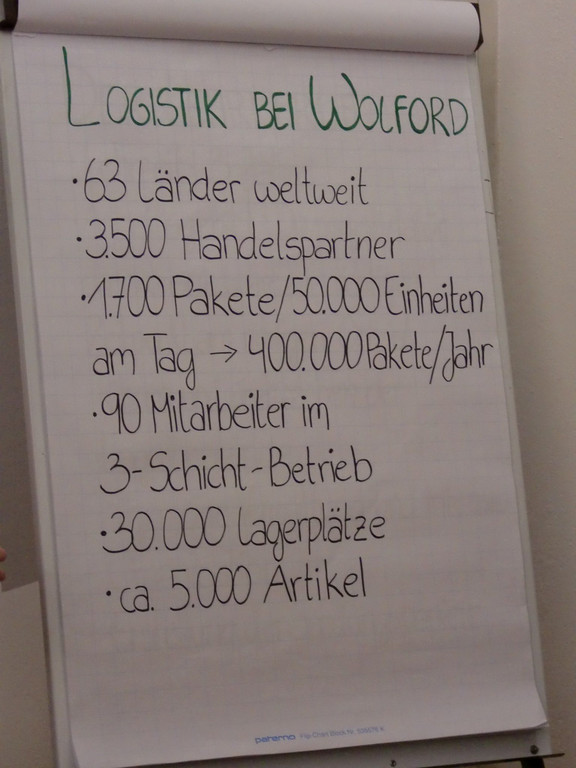 LOGISTIK BEI WOLFORD
· 63 Länder weltweit
· 3.500 Handelspartner
· 1.700 Pakete/50.000 Einheiten
am Tag → 400.000 Pakete/Jahr
· 90 Mitarbeiter im
3-Schicht-Betrieb
· 30.000 Lagerplätze
· ca. 5.000 Artikel
paterno